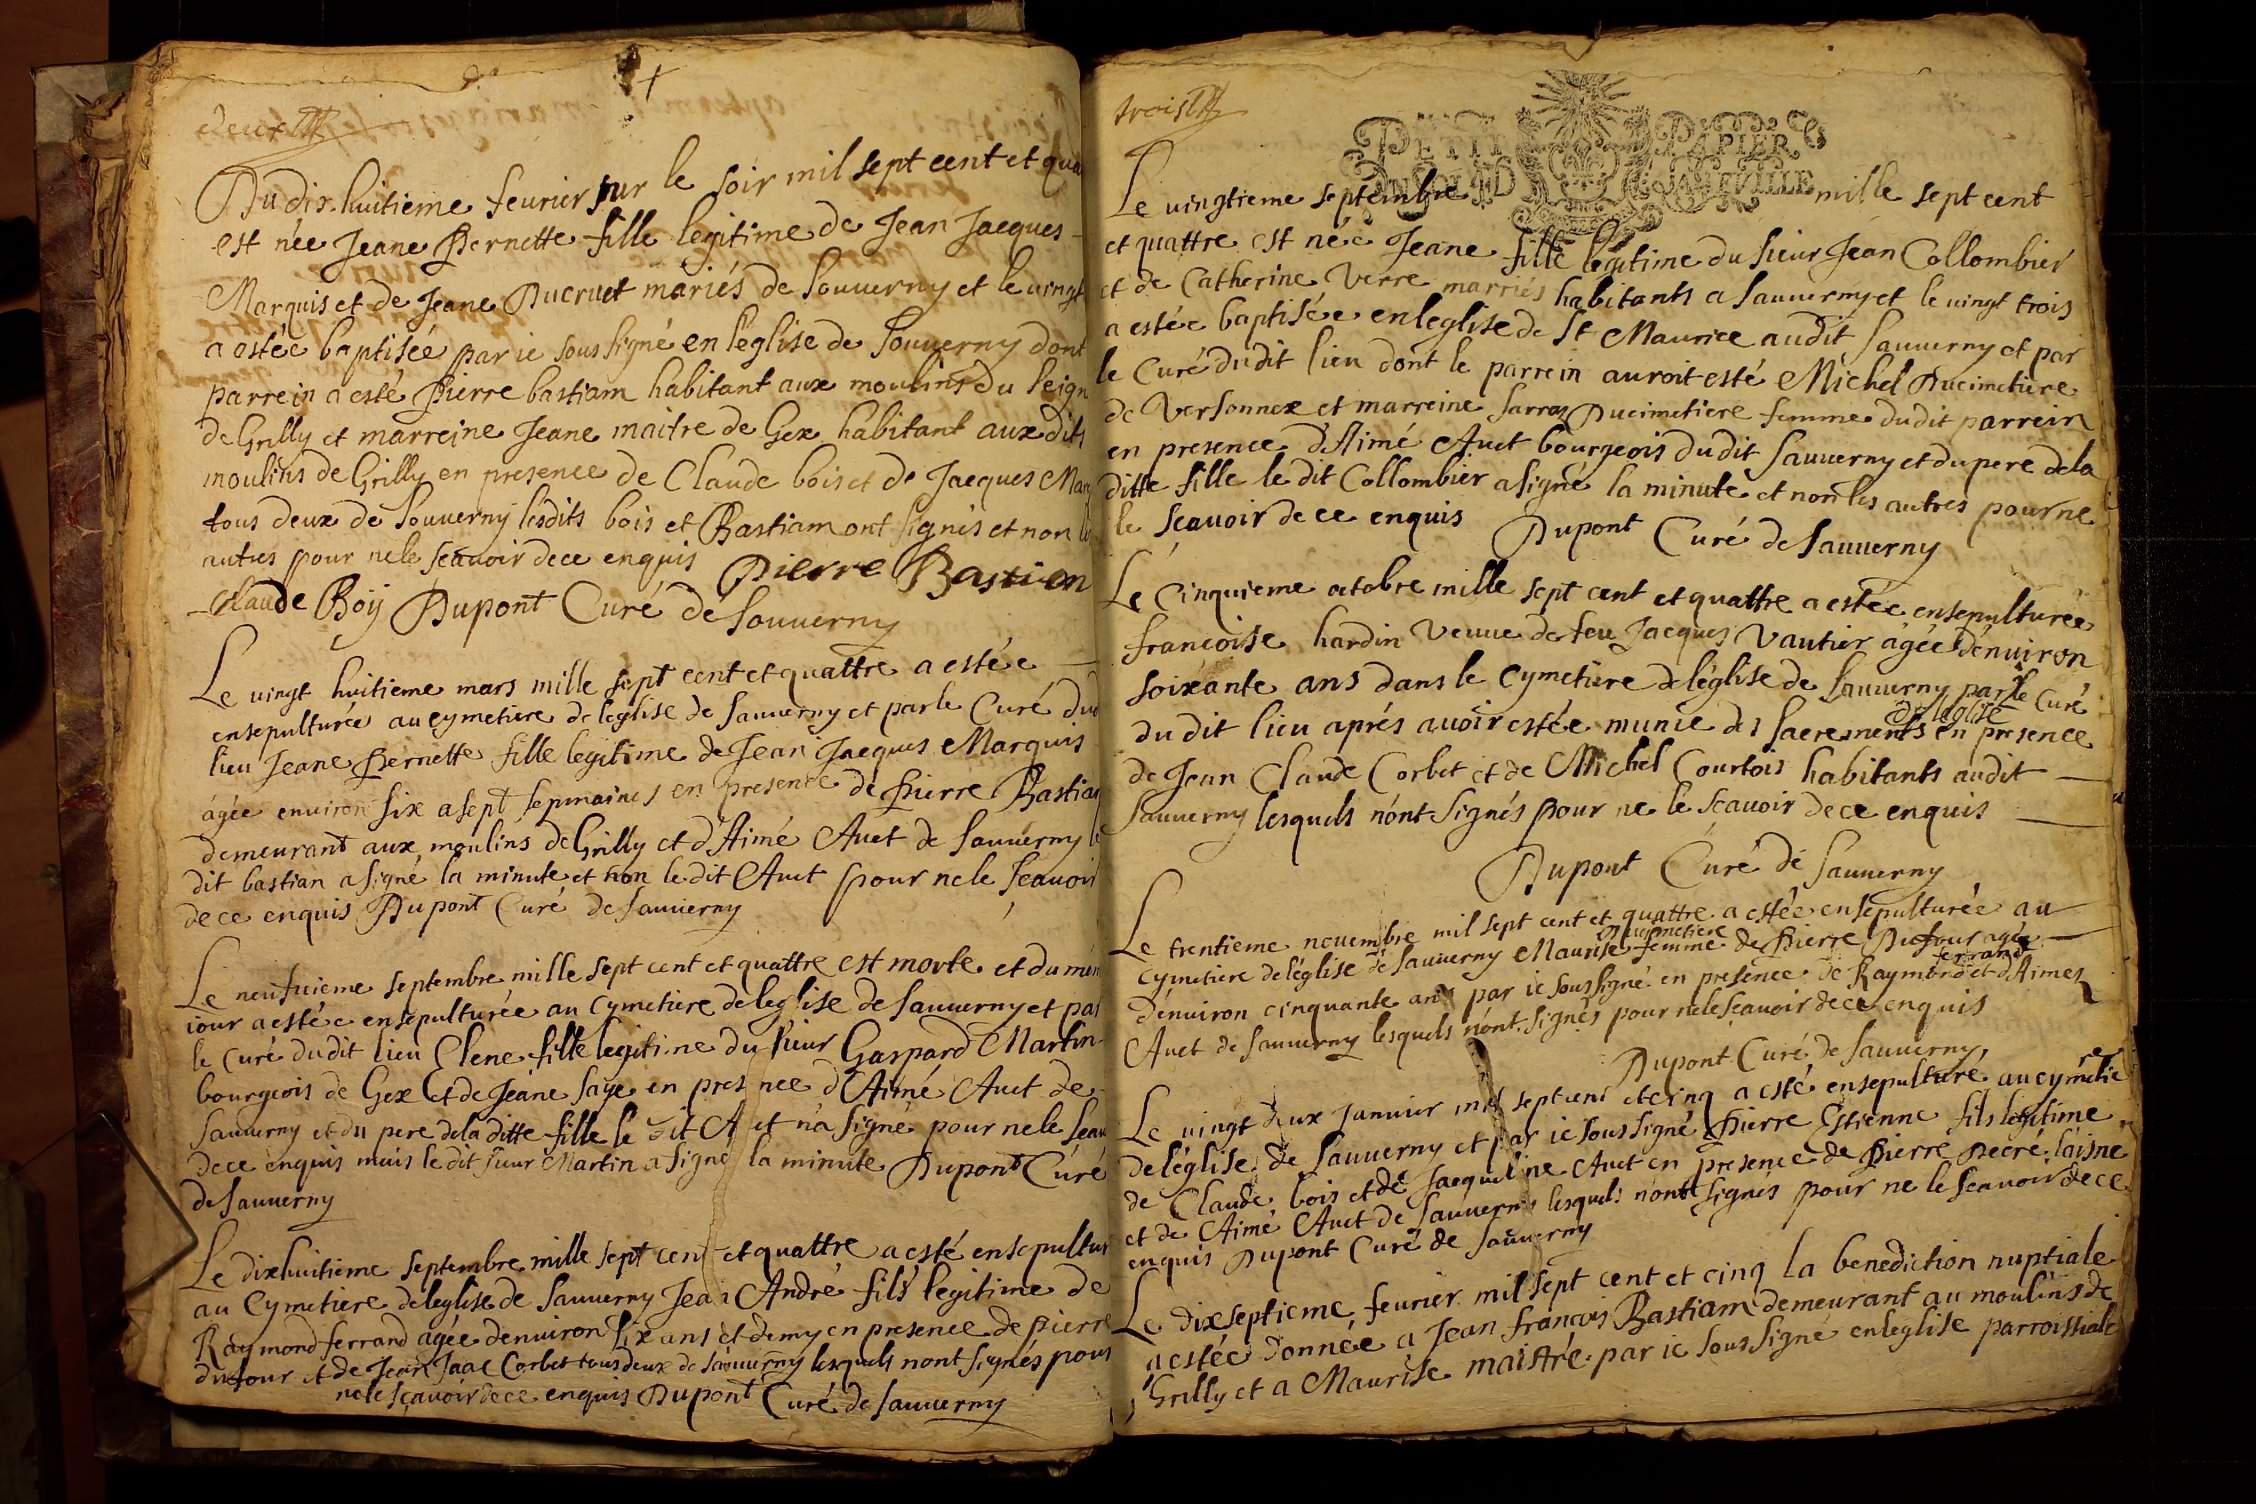 deux
Du dix huitieme feurier sur le soir mil sept cent et qua
est née Jeane Pernette fille legitime de Jean Jacques
Marquis et de Jeane Ducruet mariés de Souuerny et le uingt
a estée baptisée par ie sous signé en l'eglise de Souuerny dont
parrein a esté Pierre bastiam habitant aux moulins du seign
de Grilly et marreine Jeane maitre de Gex habitant aux dits
moulins de Grilly en presence de Claude bois et de Jacques Mar
tous deux de Souuerny lesdits bois et Bastiam ont signés et non le
autres pour ne le scauoir de ce enquis Pierre Bastian
Claude Boij Dupont Curé de Souuerny
Le uingt huitieme mars mille sept cent et quattre a estée
ensepulturée au cymetiere de leglise de Sauuerny et par le Curé dud
lieu Jeane Pernette fille legitime de Jean Jacques Marquis
âgée enuiron six a sept sepmaines en presence de Pierre Bastian
demeurant aux moulins de Grilly et d'Aimé Auet de Sauuerny le
dit bastian a signé la minute et non le dit Auet pour ne le scauoir
de ce enquis Dupont Curé de Sauuerny
Le neufuieme septembre mille sept cent et quattre est morte et du mem
iour a estée ensepulturée au cymetiere de leglise de Sauuerny et par
le Curé du dit lieu Elene fille legitime du sieur Gaspard Martin
bourgeois de Gex et de Jeane Saye en presence d'Aimé Auet de
Sauuerny et du pere de la ditte fille le dit Auet n'a signé pour ne le scau
de ce enquis mais le dit sieur Martin a signé la minute Dupont Curé
de Sauuerny
Le dixhuitieme septembre mille sept cent et quattre a esté ensepultur
au Cymetiere de leglise de Sauuerny Jean André fils legitime de
Raymond ferrand agée denuiron six ans et demy en presence de pierre
dufour et de Jean Isaac Corbet tous deux de Sauuerny lesquels nont signés pour
ne le sçauoir de ce enquis Dupont Curé de Sauuerny
trois
PETIT PAPIER
Le uingtieme septembre mille sept cent
et quattre est née Jeane fille légitime du sieur Jean Collombier
et de Catherine Verre marriés habitants a Sauuerny et le uingt trois
a estée baptisée en leglise de St Maurice audit Sauuerny et par
le Curé du dit lieu dont le parrein auroit esté Michel Ducimetiere
de Versonnex et marreine Sarra Ducimetiere femme du dit parrein
en presence d'Aimé Auet bourgeois du dit Sauuerny et du pere de la
ditte fille le dit Collombier a signé la minute et non les autres pour ne
le scauoir de ce enquis Dupont Curé de Sauuerny
Le Cinquieme octobre mille sept cent et quattre a estée ensepulturée
françoise hardin Veuue de feu Jacques Vautier âgée d'enuiron
soixante ans dans le Cymetiere de l'église de Sauuerny par le Curé
de l'eglise
du dit lieu aprés auoir estée munie des sacrements en presence
de Jean Claude Corbet et de Michel Courtois habitants audit
Sauuerny lesquels n'ont signés pour ne le scauoir de ce enquis
Dupont Curé de Sauuerny
Le trentieme nouembre mil sept cent et quattre a estée ensepulturée au
Ducimetiere
cymetiere de l'église de Sauuerny Maurise femme de Pierre Dufour agée
ferrand
d'enuiron cinquante ans par ie sous signé en presence de Raymond et d'Aimez
Auet de Sauuerny lesquels n'ont signés pour ne le sçauoir de ce enquis
Dupont Curé de Sauuerny
Le uingt deux januier mil sept cent et cinq a esté ensepulturé au cymetiere
de l'église de Sauuerny et par ie sous signé Pierre Estienne fils legitime
de Claude bois et de Jacqueline Auet en presence de Pierre Decré laisne
et de Aimé Auet de Sauuerny lesquels n'ont signés pour ne le scauoir de ce
enquis Dupont Curé de Sauuerny
Le dixseptieme feurier mil sept cent et cinq la benediction nuptiale
a estée donnée a Jean françois Bastiam demeurant au moulins de
Grilly et a Maurise maistre par ie sous signé en leglise parroissiale